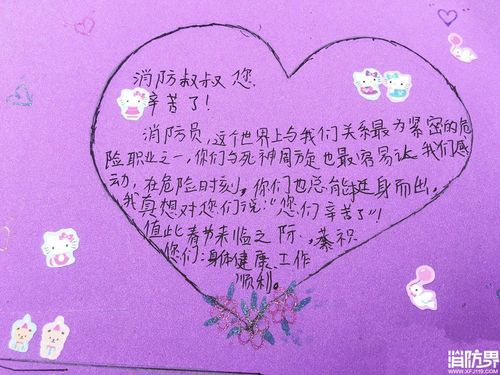 消防叔叔您
辛苦了！
消防员，这个世界上与我们关系最为紧密的危
险职业之一，你们与死神周旋也最容易让我们感
动，在危险时刻，你们也总能挺身而出。
我真想对您们说："您们辛苦了"！
值此春节来临之际，恭祝
您们：身体健康、工作
顺利。
消防界
WWW.XFJ119.COM